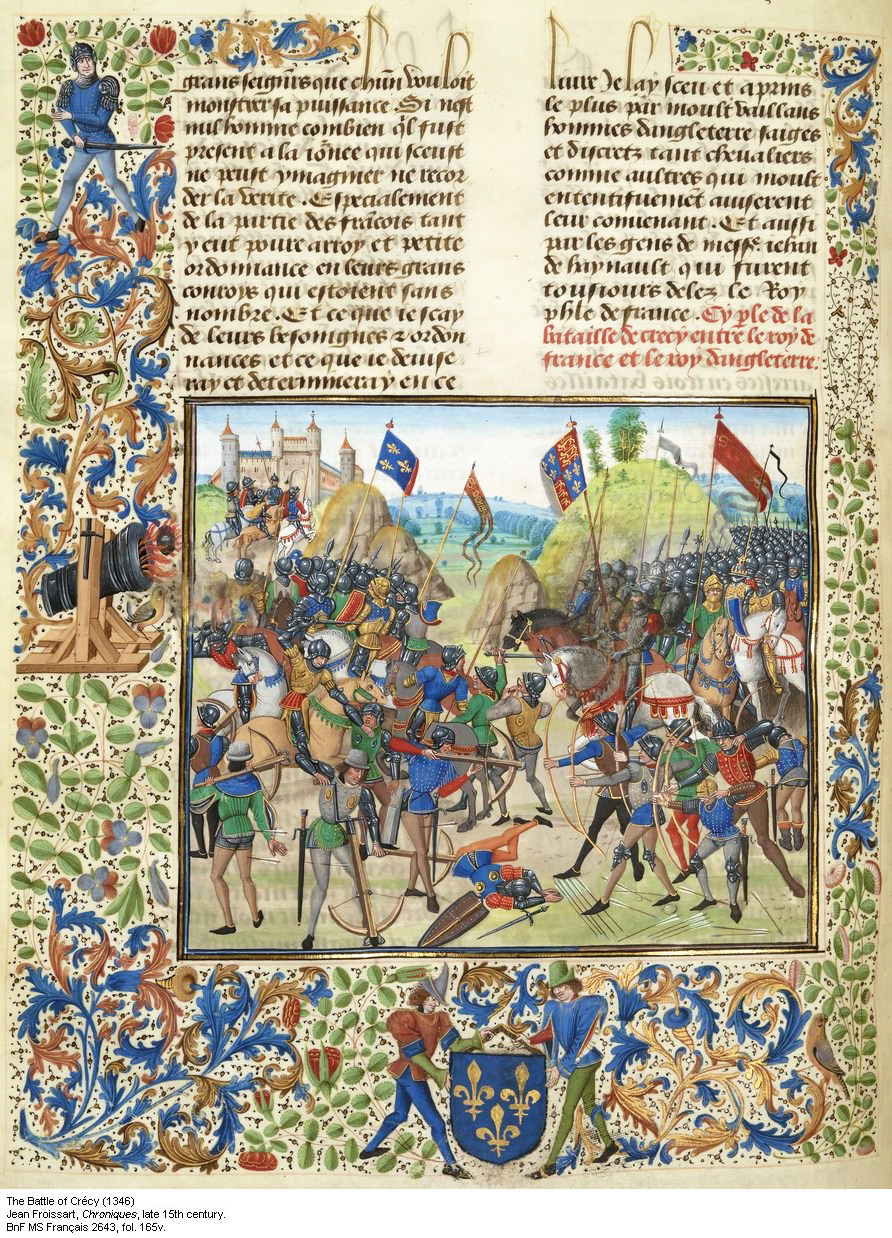 grans seign̄rs que chūn vouloit
monstrer sa puissance. Si nest
nul homme combien q̄l fust
present a la iōnee qui sceust
ne peust ymaginer ne recor
der la verite. Especialement
de la partie des frācois tant
y eut poure arroy et petite
ordonnance en leurs grans
conroys qui estoient sans
nombre. Et ce que ie scay
de leurs besoingnes ⁊ ordon
nances et ce que ie deuise
ray et determineray en ce
liure Je lay sceu et aprins
le plus par moult vaillans
hommes dangleterre saiges
et discretz tant cheualiers
comme aultres qui moult
ententifuemēt auiserent
leur conuenant. Et aussi
par les gens de messē. iehan
de haynault qui furent
tousiours delez le Roy
phl̄e de france. Cy ꝑle de la
bataille de crecy entre le roy de
france et le roy dangleterre.
The Battle of Crécy (1346)
Jean Froissart, Chroniques, late 15th century.
BnF MS Français 2643, fol. 165v.